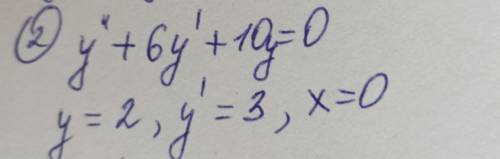 ② y" + 6y' + 10y = 0
y = 2, y' = 3, x = 0